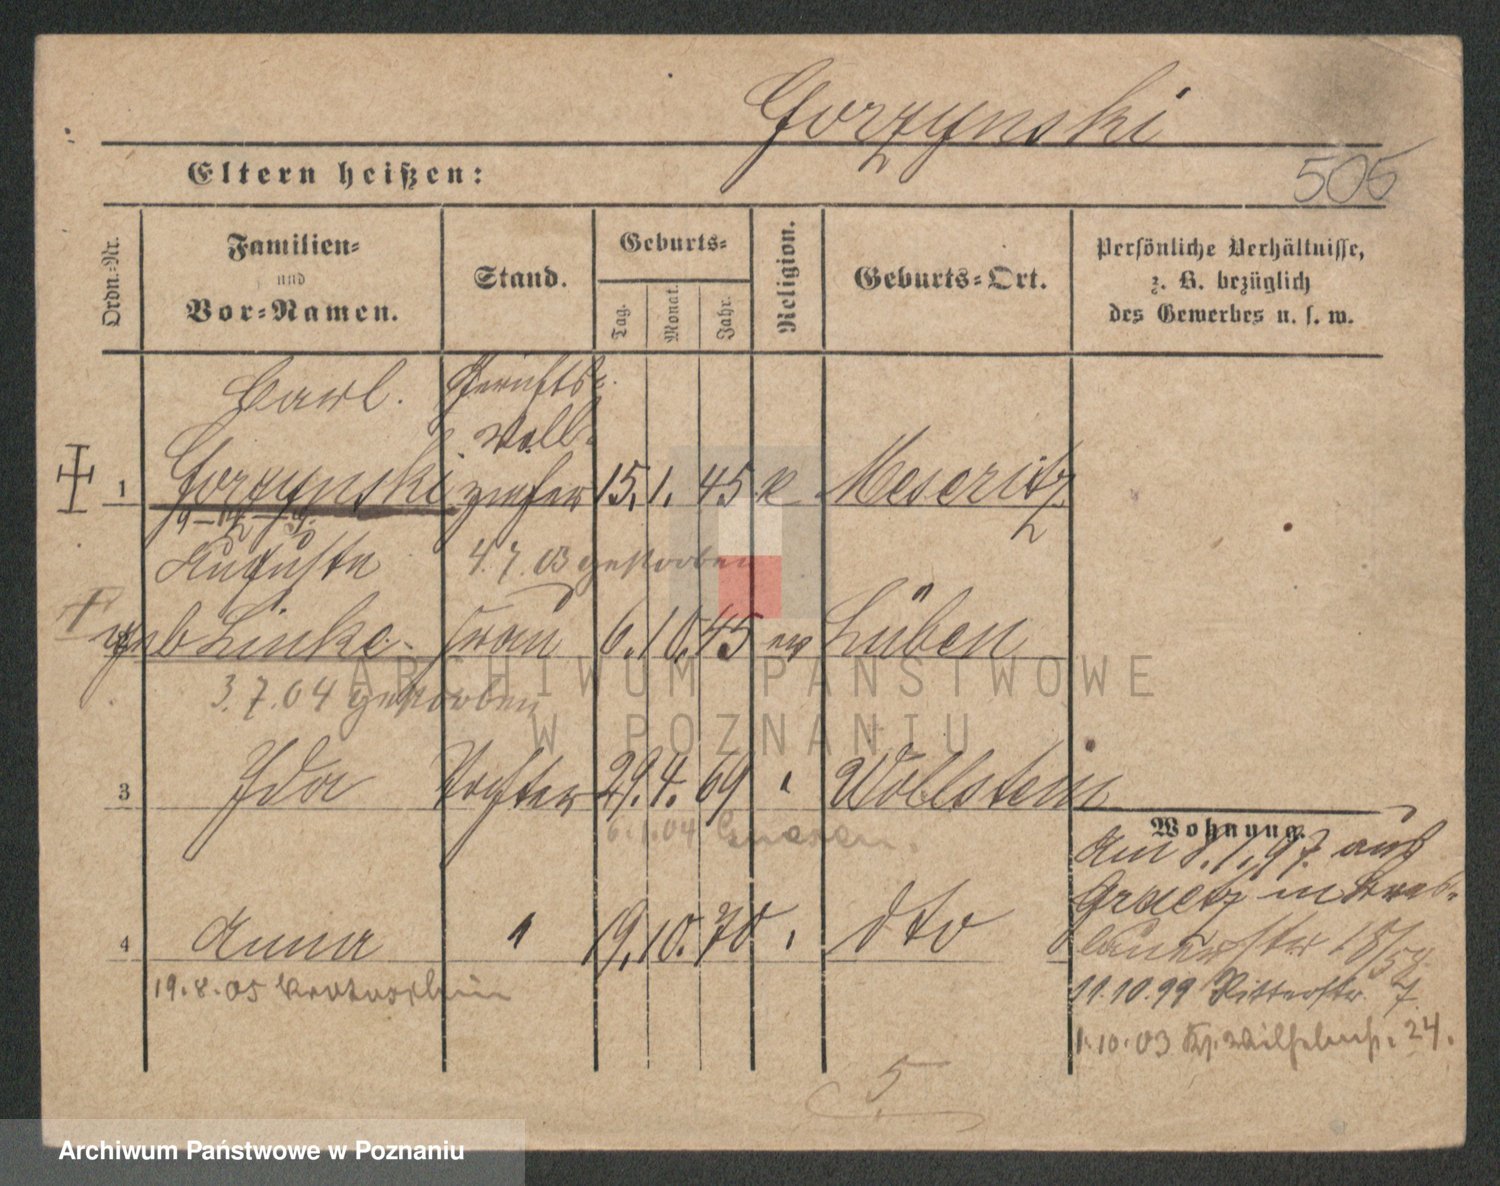 Gorzynski
Eltern heißen:
505
Ordn.-Nr.
Familien-
und
Vor-Namen.
Stand.
Geburts-
Tag.
Monat.
Jahr.
Religion.
Geburts-Ort.
Persönliche Verhältnisse,
z. B. bezüglich
des Gewerbes u. s. w.
Carl. Gerichts-
Voll-
1 Gorzynski zieher 15. 1. 45 k Meseritz
Auguste 4.7.03 gestorben
2 geb Linke Frau 6. 10. 45 ev Lüben
3.7.04 gestorben
3 Ida Tochter 29. 4. 69 " Wollstein
6.1.04 Gnesen.
Wohnung.
Am 8.1.97. aus
Graetz in Bres-
lauerstr 18/
4 Anna " 19. 10. 70 " dto
19.8.05 Krotoschin
11.10.99 Ritterstr. 7
1.10.03 Wilhelmst. 24.
5
ARCHIWUM PAŃSTWOWE
W POZNANIU
Archiwum Państwowe w Poznaniu